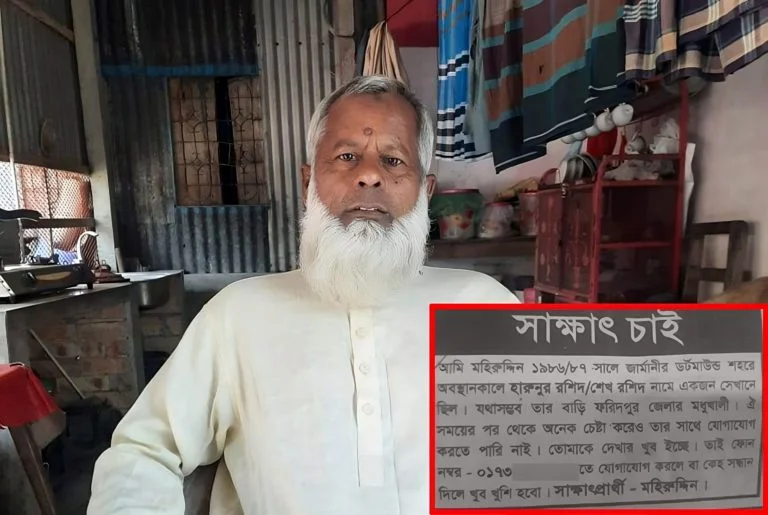 সাক্ষাৎ চাই
আমি মহিরুদ্দিন ১৯৮৬/৮৭ সালে জার্মানীর ডর্টমাউন্ড শহরে
অবস্থানকালে হারুনুর রশিদ/শেখ রশিদ নামে একজন সেখানে
ছিল। যথাসম্ভব তার বাড়ি ফরিদপুর জেলার মধুখালী। ঐ
সময়ের পর থেকে অনেক চেষ্টা করেও তার সাথে যোগাযোগ
করতে পারি নাই। তোমাকে দেখার খুব ইচ্ছে। তাই ফোন
নম্বর - ০১৭৩ তে যোগাযোগ করলে বা কেহ সন্ধান
দিলে খুব খুশি হবো। সাক্ষাৎপ্রার্থী - মহিরুদ্দিন।